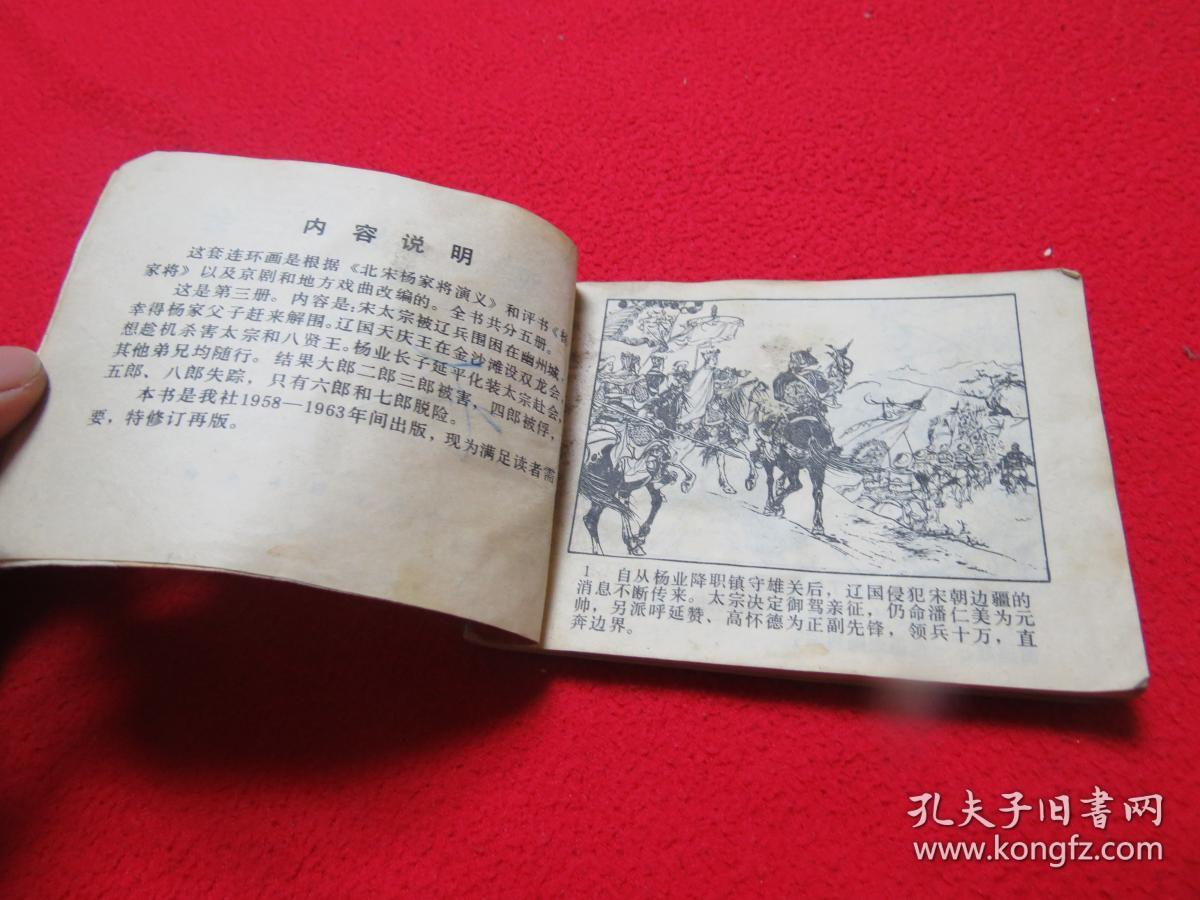 内容说明
这套连环画是根据《北宋杨家将演义》和评书《杨
家将》以及京剧和地方戏曲改编的。全书共分五册。
这是第三册。内容是:宋太宗被辽兵围困在幽州城,
幸得杨家父子赶来解围。辽国天庆王在金沙滩设双龙会,
想趁机杀害太宗和八贤王。杨业长子延平化装太宗赴会,
其他弟兄均随行。结果大郎二郎三郎被害,四郎被俘,
五郎、八郎失踪,只有六郎和七郎脱险。
本书是我社1958—1963年间出版,现为满足读者需
要,特修订再版。
1 自从杨业降职镇守雄关后,辽国侵犯宋朝边疆的
消息不断传来。太宗决定御驾亲征,仍命潘仁美为元
帅,另派呼延赞、高怀德为正副先锋,领兵十万,直
奔边界。
孔夫子旧书网
www.kongfz.com